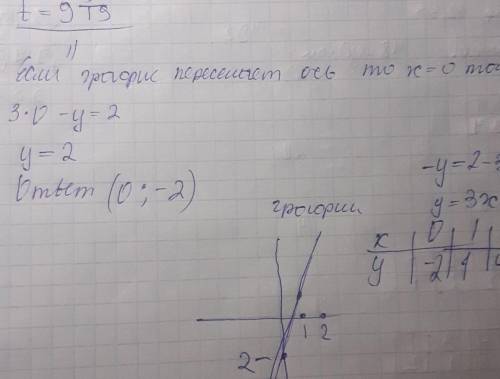 t = 9
11
Если график пересекает ось то x=0
3·0 -y=2
y=2
Ответ (0 ; -2)
-y=2-3
y=3x
график
x | 0 | 1 |
y | -2 | 1 |
1 2
2